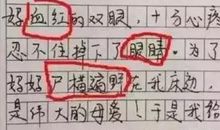 好血红的双眼,十分心疼
忍不住掉下了眼睛。为了
好好尸横遍野
是伟大的母爱!于是我给